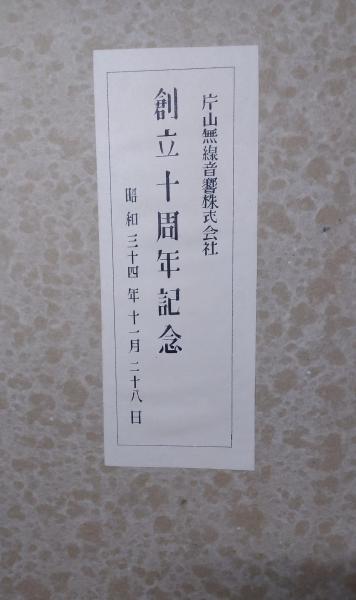 片山無線音響株式会社
創立十周年記念
昭和三十四年十一月二十八日